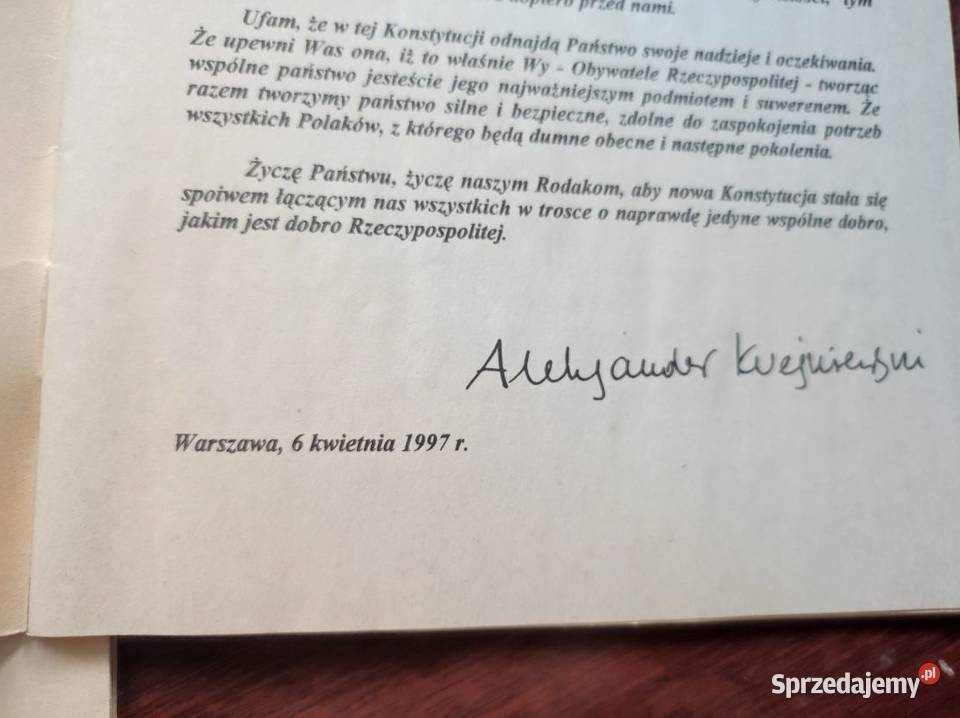 przed nami.
tym
Ufam, że w tej Konstytucji odnajdą Państwo swoje nadzieje i oczekiwania.
Że upewni Was ona, iż to właśnie Wy - Obywatele Rzeczypospolitej - tworząc
wspólne państwo jesteście jego najważniejszym podmiotem i suwerenem. Że
razem tworzymy państwo silne i bezpieczne, zdolne do zaspokojenia potrzeb
wszystkich Polaków, z którego będą dumne obecne i następne pokolenia.
Życzę Państwu, życzę naszym Rodakom, aby nowa Konstytucja stała się
spoiwem łączącym nas wszystkich w trosce o naprawdę jedyne wspólne dobro,
jakim jest dobro Rzeczypospolitej.
Aleksander Kwaśniewski
Warszawa, 6 kwietnia 1997 r.
Sprzedajemy.pl